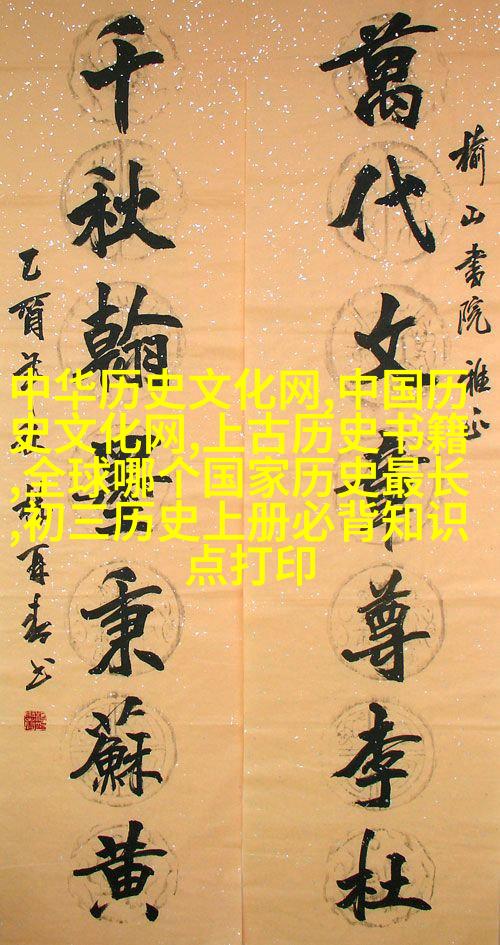 榆山書院雅正
萬代文章尊李杜
千秋翰墨秉蘇黄
乙酉
再春书
中华历史文化网,中国历
史文化网,上古历史书籍
,全球哪个国家历史最长
,初三历史上册必背知识
点打印